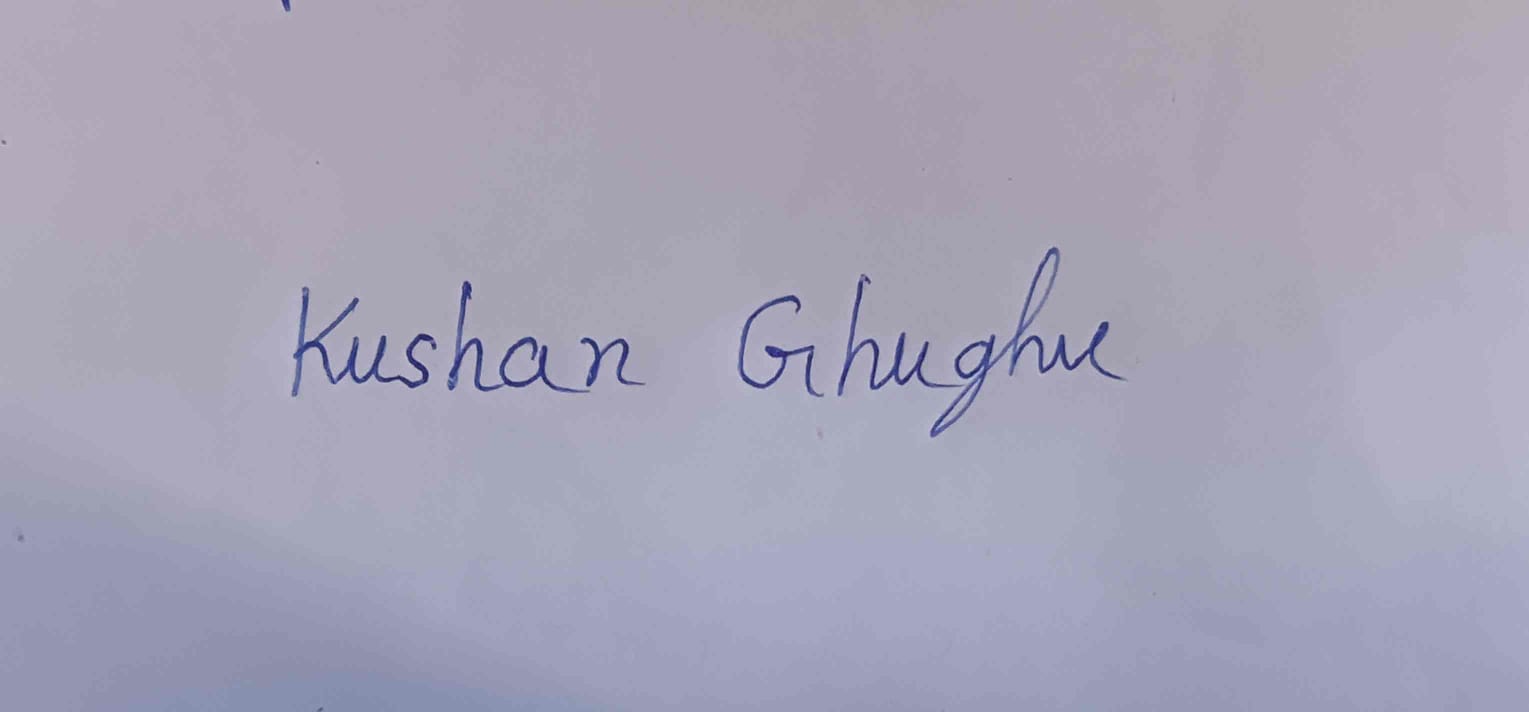 Kushan Ghughu